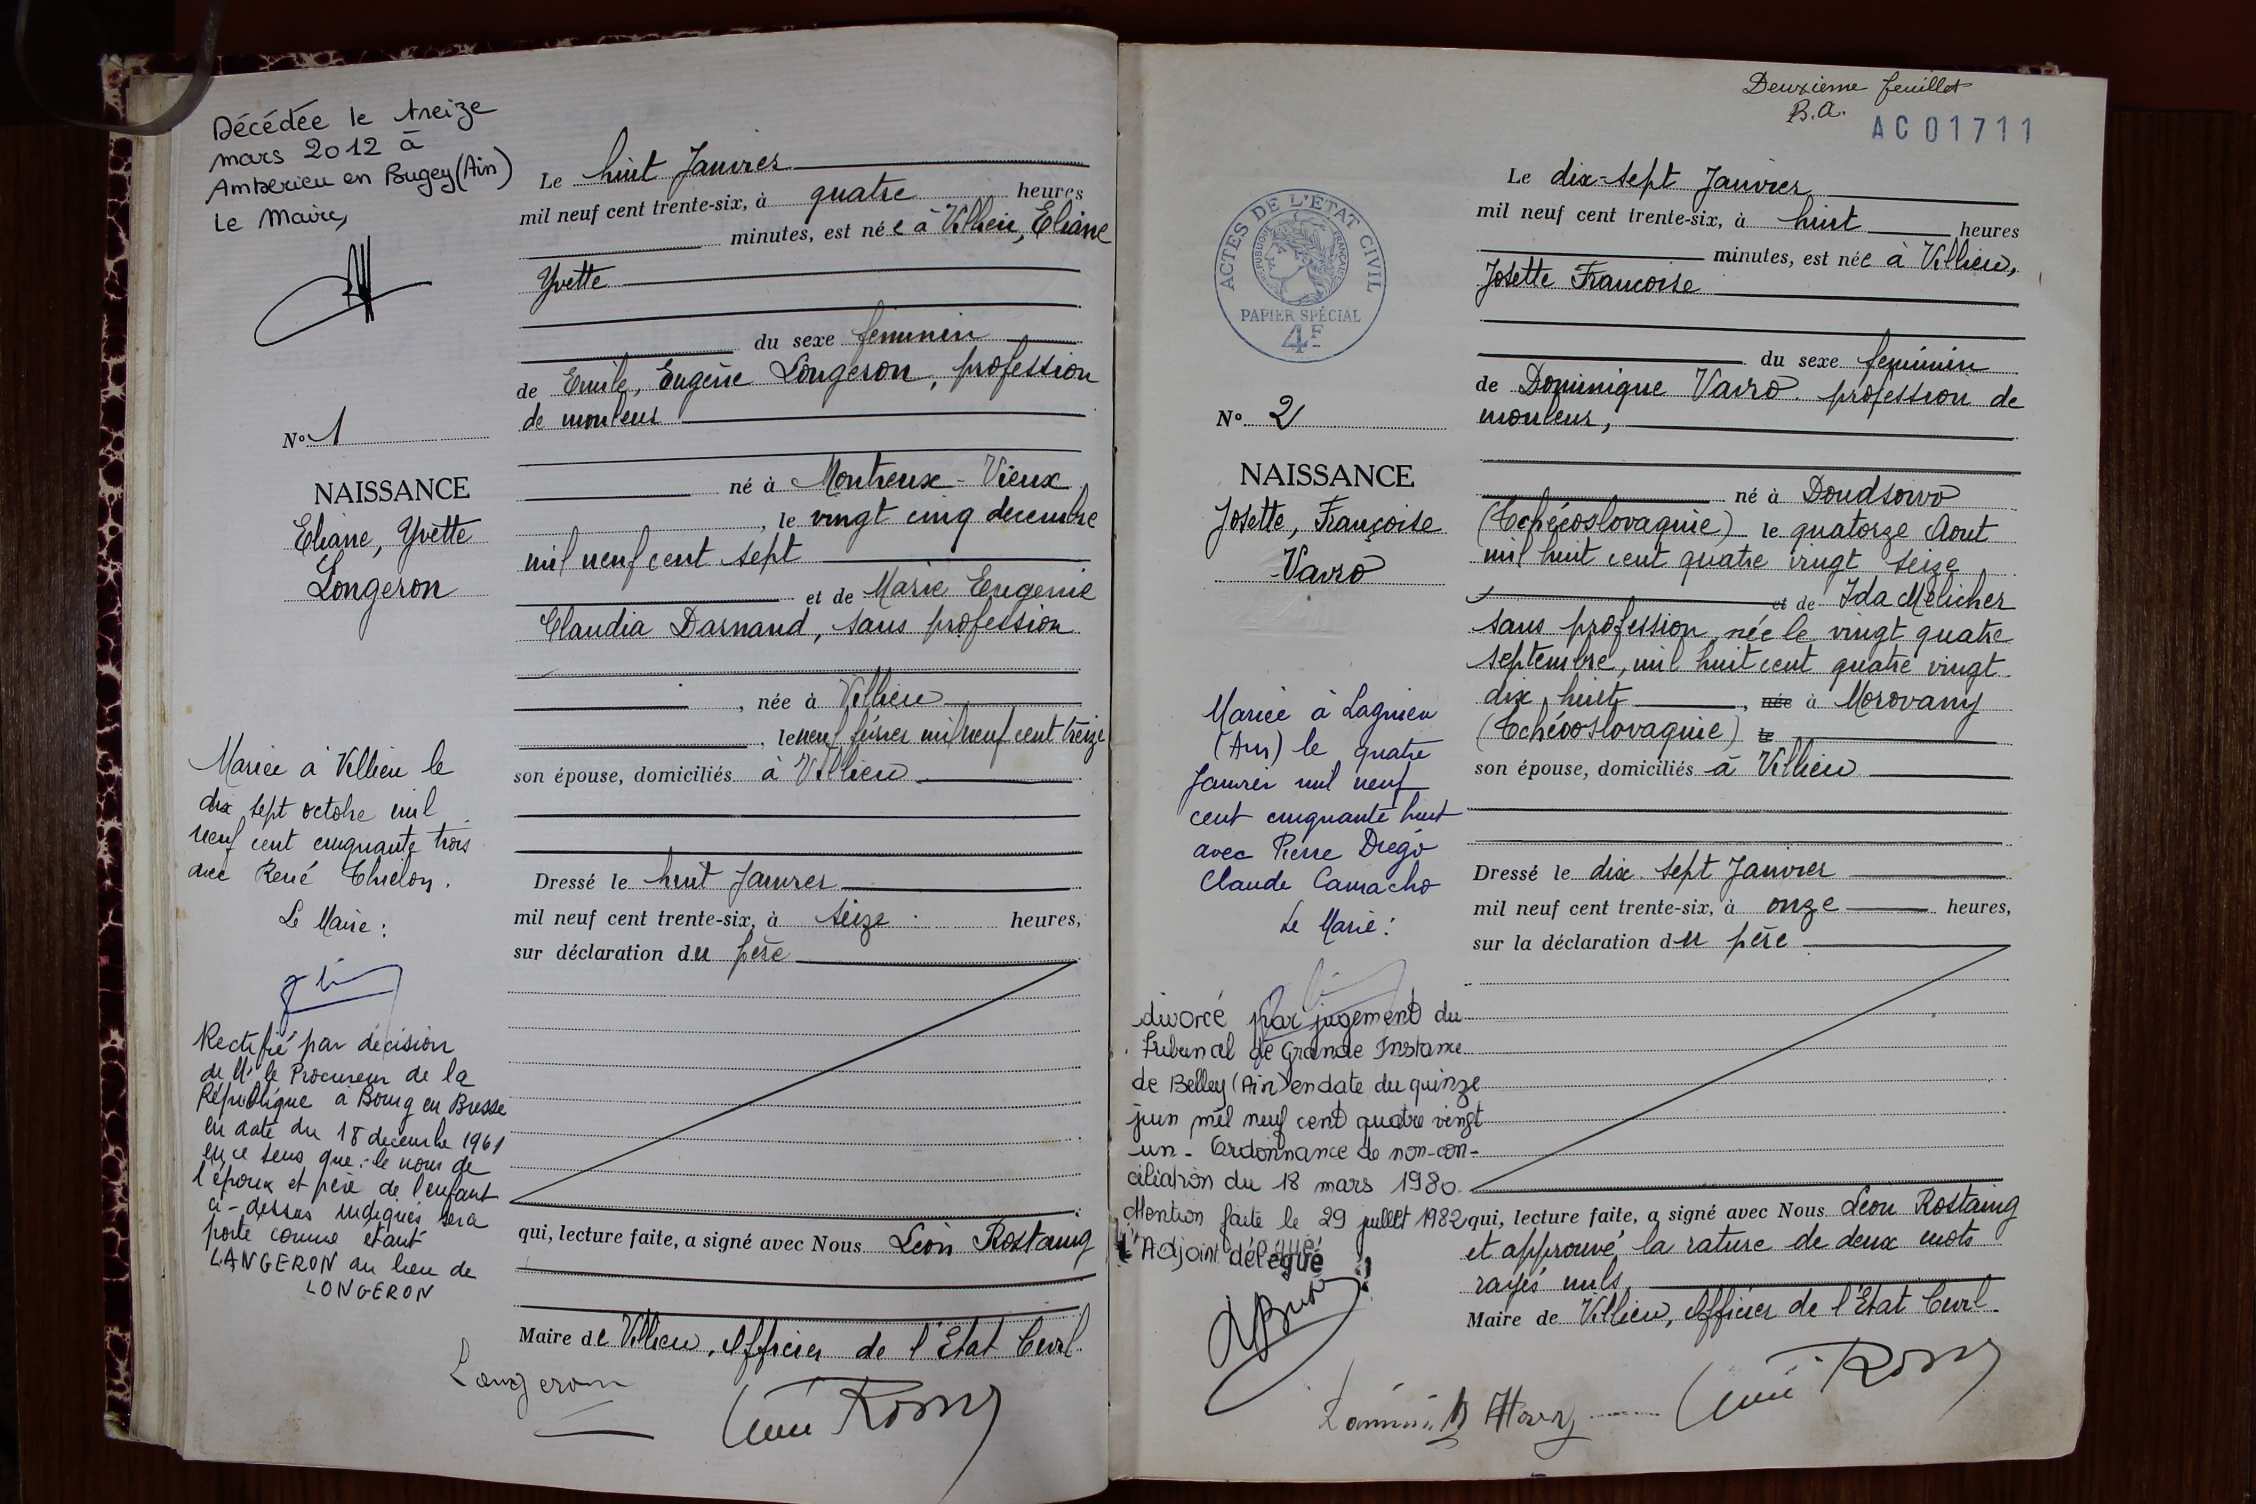 Décédée le treize
mars 2012 à
Amberieu en Bugey (Ain)
Le Maire,
N° 1
NAISSANCE
Eliane, Yvette
Longeron
Mariée à Villieu le
dix sept octobre mil
neuf cent cinquante trois
avec René Thielon.
Le Maire :
Rectifié par décision
de Mr le Procureur de la
République à Bourg en Bresse
en date du 18 decembre 1961
en ce sens que : le nom de
l'époux et père de l'enfant
ci-dessus indiqués sera
porté comme étant
LANGERON au lieu de
LONGERON
Le huit Janvier
mil neuf cent trente-six, à quatre heures
minutes, est née à Villieu, Eliane
Yvette
du sexe feminin
de Emile, Eugène Longeron, profession
de mouleur
né à Montreux-Vieux
, le vingt cinq decembre
mil neuf cent sept
et de Marie Eugenie
Claudia Darnand, sans profession
, née à Villieu
, le neuf février mil neuf cent treize
son épouse, domiciliés à Villieu
Dressé le huit Janvier
mil neuf cent trente-six, à seize heures,
sur déclaration du père
qui, lecture faite, a signé avec Nous Léon Rostaing
Maire de Villieu, Officier de l'Etat Civil.
Langeron
Deuxième feuillet
B.A.
AC01711
ACTES DE L'ETAT CIVIL
REPUBLIQUE FRANÇAISE
PAPIER SPÉCIAL
4F
N° 2
NAISSANCE
Josette, Françoise
Vavro
Mariée à Lagnieu
(Ain) le quatre
Janvier mil neuf
cent cinquante huit
avec Pierre Diégo
Claude Camacho
Le Maire :
divorcé par jugement du
Tribunal de Grande Instance
de Belley (Ain) en date du quinze
juin mil neuf cent quatre vingt
un - Ordonnance de non-con-
ciliation du 18 mars 1980.
Mention faite le 29 juillet 1982
L'Adjoint délégué
Le dix-sept Janvier
mil neuf cent trente-six, à huit heures
minutes, est née à Villieu,
Josette Francoise
du sexe feminin
de Dominique Vavro. profession de
mouleur,
né à Doudsowo
(Tchécoslovaquie) le quatorze Aout
mil huit cent quatre vingt seize
et de Ida Melicher
sans profession, née le vingt quatre
septembre, mil huit cent quatre vingt
dix huit, née à Morovany
(Tchécoslovaquie) le
son épouse, domiciliés à Villieu
Dressé le dix-sept Janvier
mil neuf cent trente-six, à onze heures,
sur la déclaration du père
qui, lecture faite, a signé avec Nous Léon Rostaing
et approuvé la rature de deux mots
rayés nuls
Maire de Villieu, Officier de l'Etat Civil.